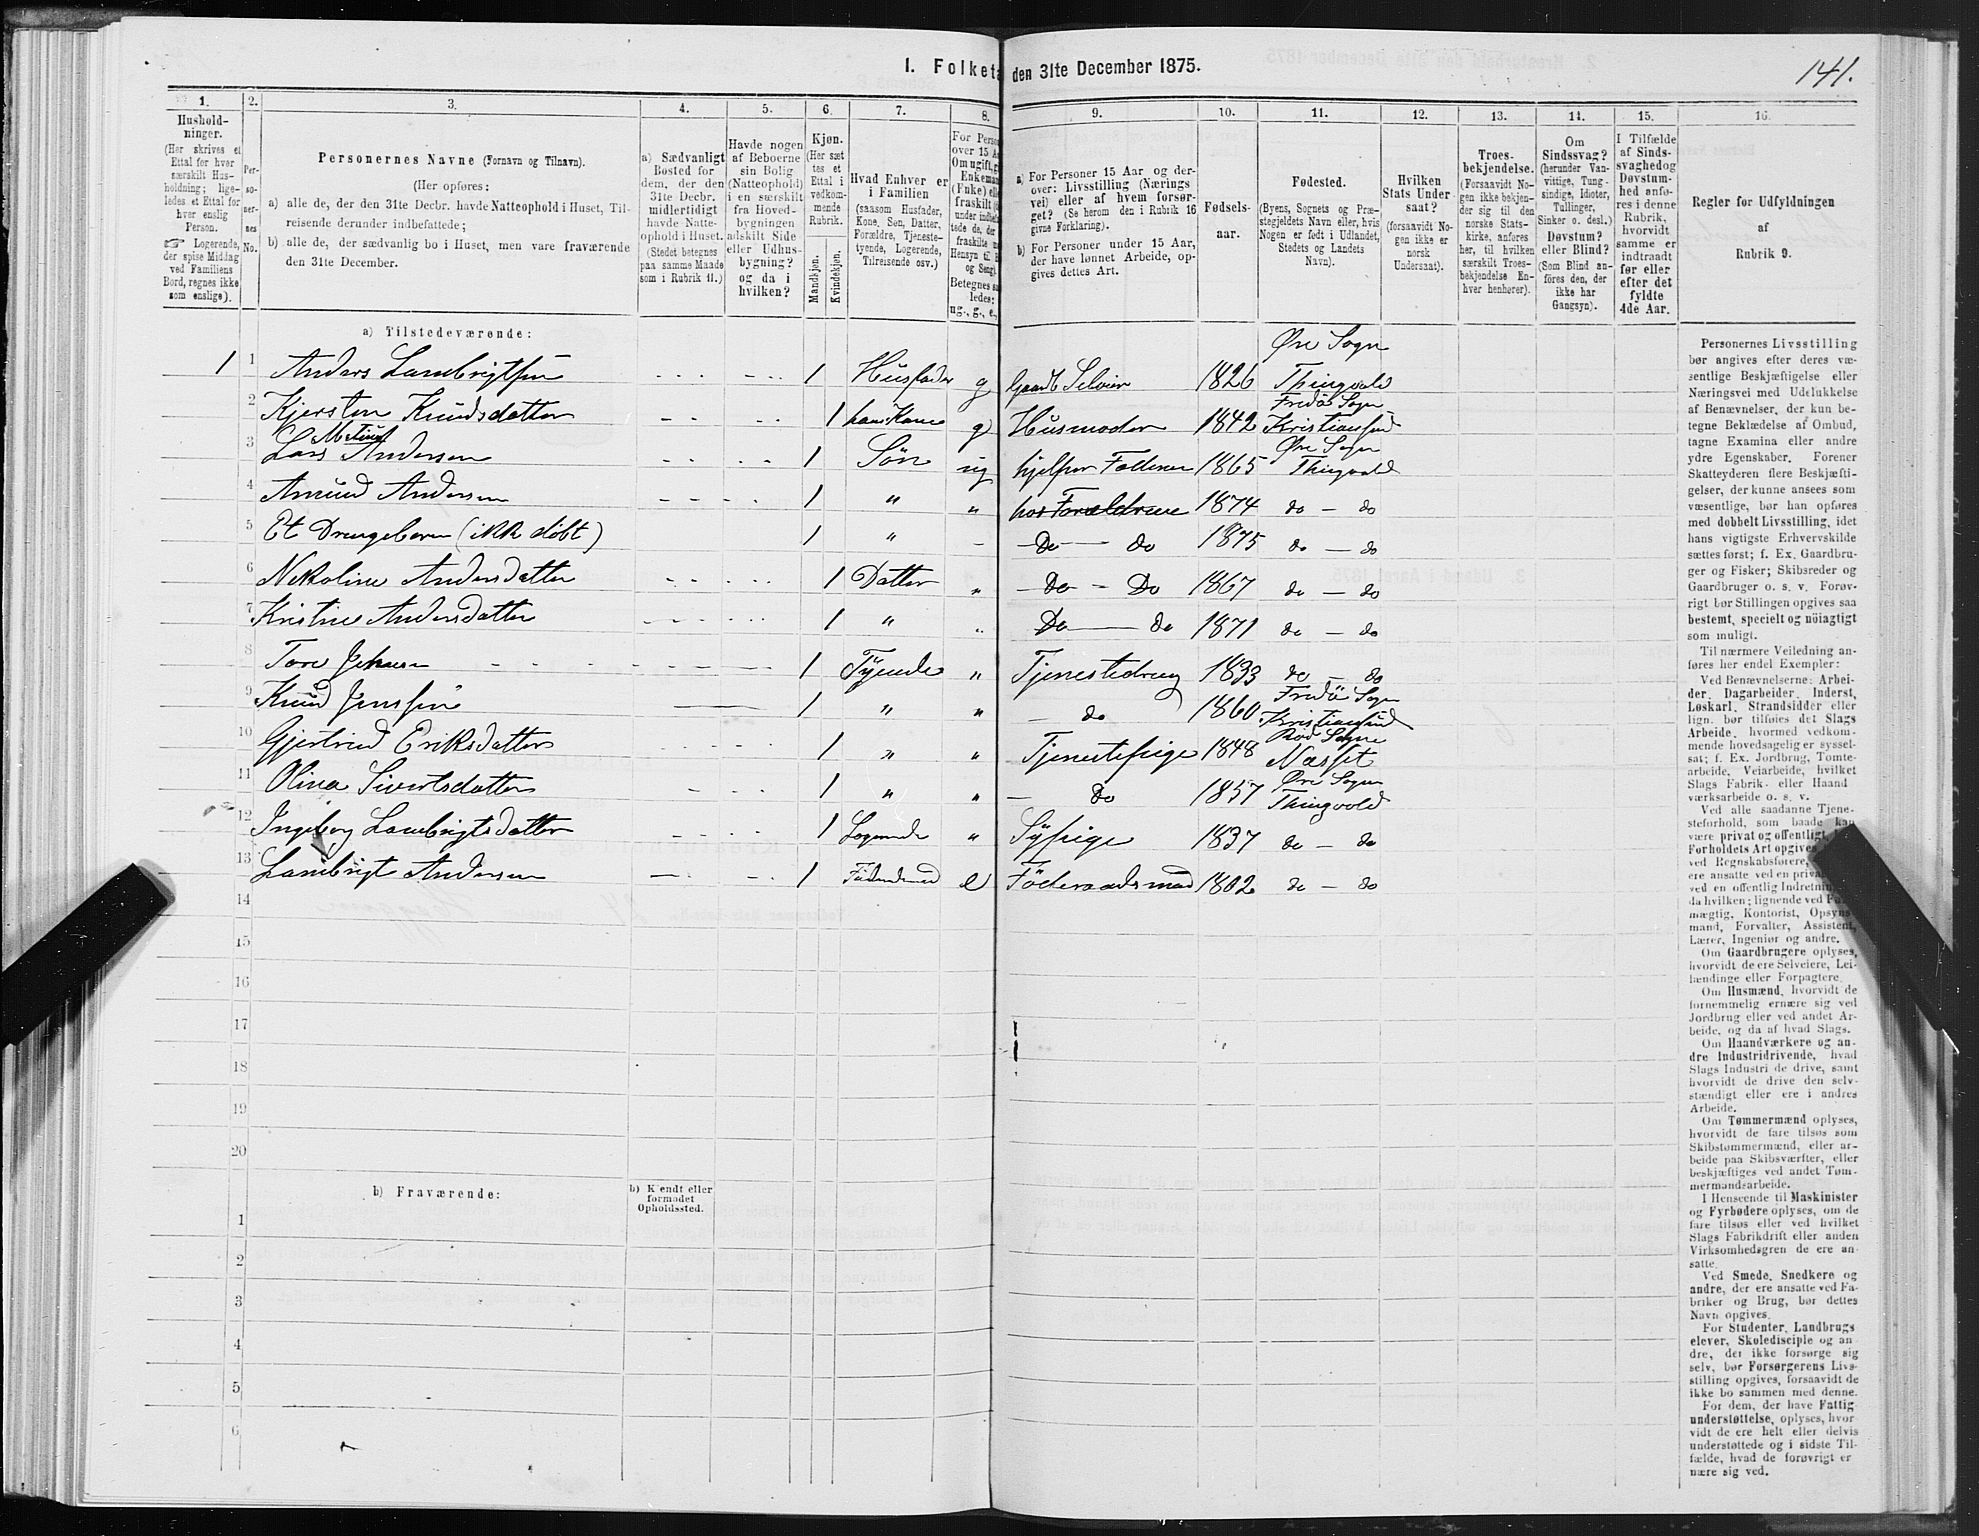 I. Folketa
den 31te December 1875.
141.
1.
Hushold-
ninger.
(Her skrives et
Ettal for hver
særskilt Hus-
holdning; lige-
ledes et Ettal for
hver enslig
Person.
☞ Logerende,
der spise Middag
ved Familiens
Bord, regnes ikke
som enslige).
2.
Per-
so-
ner-
nes
No.
3.
Personernes Navne (Fornavn og Tilnavn).
(Her opføres:
a) alle de, der den 31te Decbr. havde Natteophold i Huset, Til-
reisende derunder indbefattede;
b) alle de, der sædvanlig bo i Huset, men vare fraværende
den 31te December.
4.
a) Sædvanligt
Bosted for
dem, der den
31te Decbr.
midlertidigt
havde Natte-
ophold i Huset.
(Stedet betegnes
paa samme Maade
som i Rubrik 11.)
5.
Havde nogen
af Beboerne
sin Bolig
(Natteophold)
i en særskilt
fra Hoved-
bygningen
adskilt Side
eller Udhus-
bygning?
og da i
hvilken?
6.
Kjøn.
(Her sæt
tes et
Ettal i
vedkom-
mende
Rubrik.
Mandkjøn.
Kvindekjøn.
7.
Hvad Enhver er
i Familien
(saasom Husfader,
Kone, Søn, Datter,
Forældre, Tjeneste-
tyende, Logerende,
Tilreisende osv.)
8.
For Perso
over 15 A
Om ugift, g
Enkema
(Enke) elle
fraskilt
under indbef
tede de, der
fraskilte
Hensyn til B
og Seng).
Betegnes
ledes:
ug., g., e.,
9.
a) For Personer 15 Aar og der-
over: Livsstilling (Nærings
vei) eller af hvem forsør-
get? (Se herom den i Rubrik 16
givne Forklaring).
b) For Personer under 15 Aar,
der have lønnet Arbeide, op-
gives dettes Art.
10.
Fødsels-
aar.
11.
Fødested.
(Byens, Sognets og Præ-
stegjeldets Navn eller, hvis
Nogen er født i Udlandet,
Stedets og Landets
Navn).
12.
Hvilken
Stats Under-
saat?
(forsaavidt No-
gen ikke er
norsk
Undersaat).
13.
Troes-
bekjendelse.
(Forsaavidt No-
gen ikke bekjen-
der sig til den
norske Stats-
kirke, anføres
her, til hvilken
særskilt Troes-
bekjendelse En-
hver henhører).
14.
Om
Sindssvag?
(herunder Van-
vittige, Tung-
sindige, Idioter,
Tullinger,
Sinker o. desl.)
Døvstum?
eller Blind?
(Som Blind an-
føres den, der
ikke har
Gangsyn).
15.
I Tilfælde
af Sinds-
svaghed og
Døvstum-
hed anfø-
res i denne
Rubrik,
hvorvidt
samme er
indtraadt
før eller
efter det
fyldte
4de Aar.
16.
Regler for Udfyldningen
af
Rubrik 9.
a) Tilstedeværende:
1 1 Anders Lambrigtsen 1 Husfader g Gaardb Selveier 1826 Øre Sogn Thingvold
2 Kjersten Knudsdatter 1 hans Kone g Husmoder 1842 Fredø Sogn Kristiansund
3 Lars Andersen 1 Søn ug hjelper Faderen 1865 Øre Sogn Thingvold
4 Amund Andersen 1 " " hos Forældrene 1874 do - do
5 Et Drengebarn (ikke døbt) 1 " - Do - do 1875 do - do
6 Nikoline Andersdatter 1 Datter " Do - Do 1867 do - do
7 Kristine Andersdatter 1 " " Do - do 1871 do - do
8 Tore Johnsen 1 Tyende " Tjenestedreng 1833 do - do
9 Knud Jenssen 1 " " - do 1860 Fredö Sogn Kristiansund
10 Gjertrud Eriksdatter 1 " " Tjenestepige 1848 Rød Sogn Næsset
11 Olina Sivertsdatter 1 " " - Do 1857 Øre Sogn Thingvold
12 Ingeborg Lambrigtsdatter 1 Logerende " Sypige 1837 do - do
13 Lambrigt Andersen 1 e Föderaadsmand 1802 do - do
14
15
16
17
18
19
20
b) Fraværende:
b) Kjendt eller
formodet
Opholdssted.
1
2
3
4
5
6
Personernes Livsstilling
bør angives efter deres væ-
sentlige Beskjæftigelse eller
Næringsvei med Udelukkelse
af Benævnelser, der kun be-
tegne Beklædelse af Ombud,
tagne Examina eller andre
ydre Egenskaber. Forener
Skatteyderen flere Beskjæfti-
gelser, der kunne ansees som
væsentlige, bør han opføres
med dobbelt Livsstilling, idet
hans vigtigste Erhvervskilde
sættes først; f. Ex. Gaardbru-
ger og Fisker; Skibsreder og
Gaardbruger o. s. v. Forøv-
rigt bør Stillingen opgives saa
bestemt, specielt og nöiagtigt
som muligt.
Til nærmere Veiledning an-
føres her endel Exempler:
Ved Benævnelserne: Arbei-
der, Dagarbeider, Inderst,
Løskarl, Strandsidder eller
lign. bør tilføies det Slags
Arbeide, hvormed vedkom-
mende hovedsagelig er syssel-
sat; f. Ex. Jordbrug, Tomte-
arbeide, Veiarbeide, hvilket
Slags Fabrik- eller Haand
værksarbeide o. s. v.
Ved alle saadanne Tjene-
steforhold, som baade kan
være privat og offentligt,
Forholdets Art opgives
ved Regnskabsførere,
ere ansatte ved en priva
ved en offentlig Indretnin
da hvilken; lignende ved Fu
mægtig, Kontorist, Opsyns
mand, Forvalter, Assistent,
Lærer, Ingeniør og andre.
Om Gaardbrugere oplyses,
hvorvidt de ere Selveiere, Lei-
lændinge eller Forpagtere.
Om Husmænd, hvorvidt de
fornemmelig ernære sig ved
Jordbrug eller ved andet Ar-
beide, og da af hvad Slags.
Om Haandværkere og an-
dre Industridrivende, hvad
Slags Industri de drive, samt
hvorvidt de drive den selv-
stændigt eller ere i andres
Arbeide.
Om Tømmermænd oplyses,
hvorvidt de fare tilsøs som
Skibstømmermænd, eller ar-
beide paa Skibsværfter, eller
beskjæftiges ved andet Tøm-
mermandsarbeide.
I Henseende til Maskinister
og Fyrbødere oplyses, om de
fare tilsøs eller ved hvilket
Slags Fabrikdrift eller anden
Virksomhedsgren de ere an-
satte.
Ved Smede, Snedkere og
andre, der ere ansatte ved Fa-
briker og Brug, bør dettes
Navn opgives.
For Studenter, Landbrugs
elever, Skoledisciple og an-
dre, der ikke forsørge sig
selv, bør Forsørgerens Livs-
stilling opgives, forsaavidt de
ikke bo sammen med denne.
For dem, der have Fattig-
understøttelse, oplyses, hvor-
vidt de ere helt eller delvis
understøttede og i sidste Til-
fælde, hvad de forøvrigt er
nære sig ved.